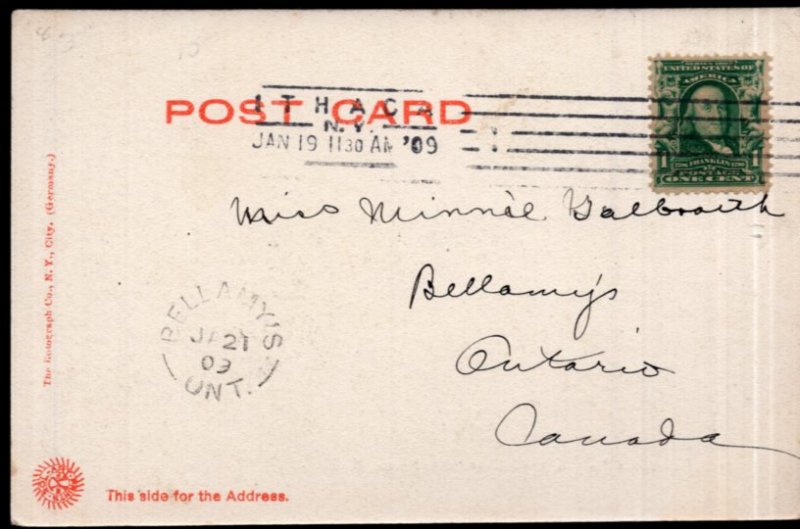 SERIES 1902
UNITED STATES OF
AMERICA
FRANKLIN
POSTAGE
1 ONE CENT 1
ITHACA
N.Y.
JAN 19 11 30 AM '09
POST CARD
Miss Minnie Galbraith
Bellamy's
Ontario
Canada
BELLAMY'S
JA 21
09
ONT.
The Rotograph Co., N. Y., City. (Germany.)
This side for the Address.